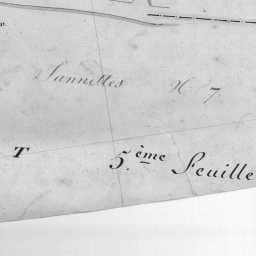 Sannelles N 7
T
5.ème Feuille